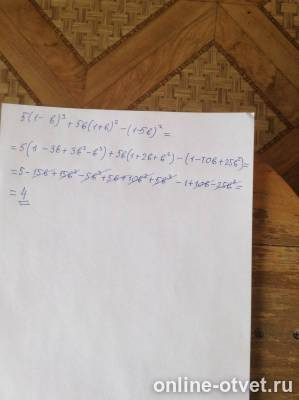 5(1- b)³ + 5b(1+b)² - (1-5b)² =
= 5(1 - 3b + 3b² - b³) + 5b(1+2b+b²) - (1 - 10b + 25b²) =
= 5 - 15b + 15b² - 5b³ + 5b + 10b² + 5b³ - 1 + 10b - 25b² =
= 4
online-otvet.ru